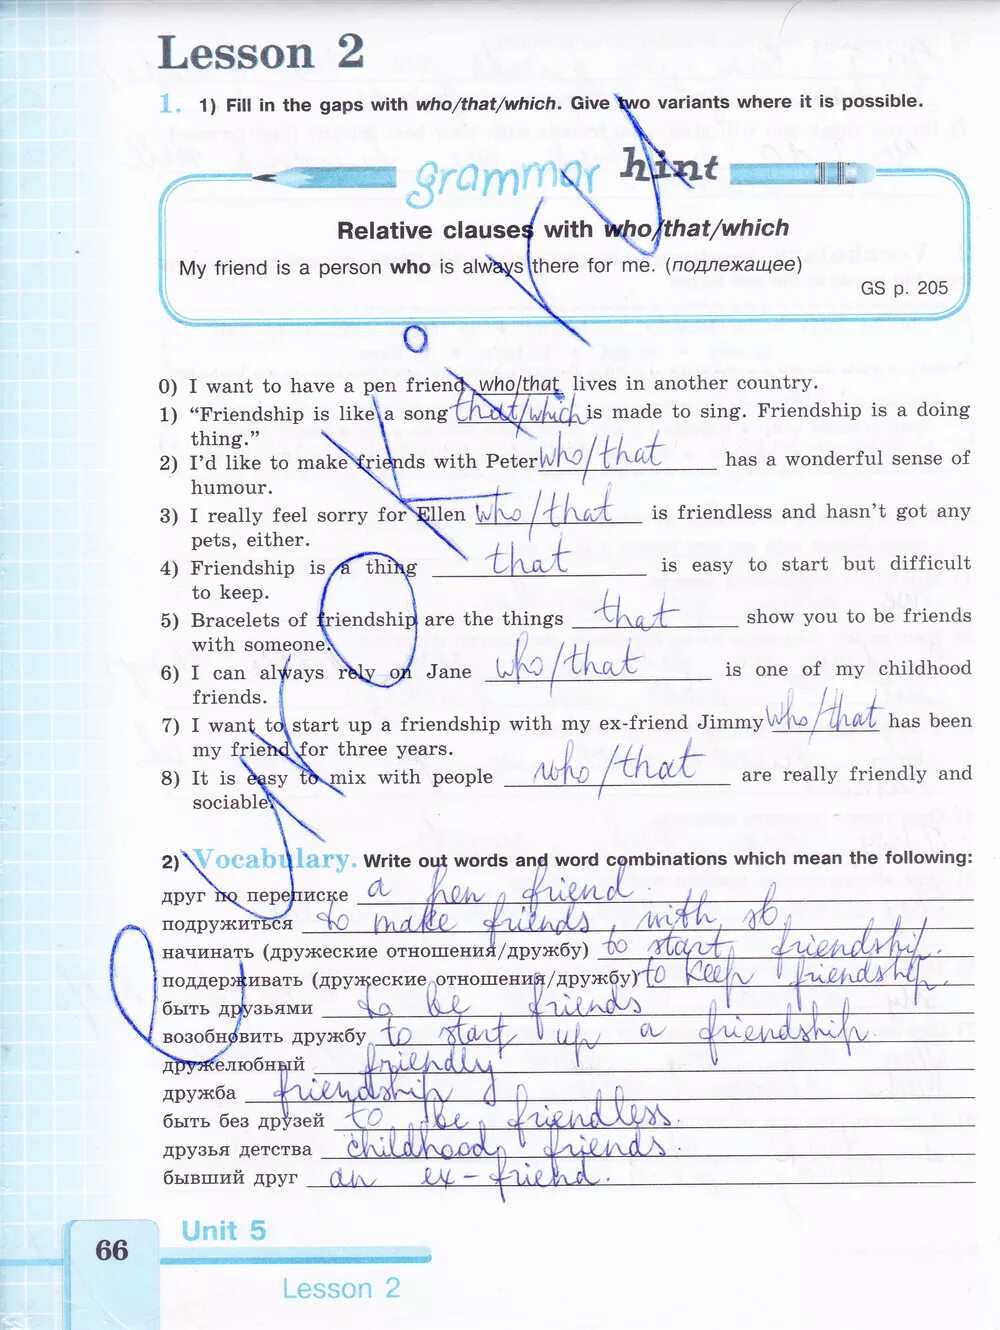 Lesson 2
1. 1) Fill in the gaps with who/that/which. Give two variants where it is possible.
grammar hint
Relative clauses with who/that/which
My friend is a person who is always there for me. (подлежащее)
GS p. 205
0) I want to have a pen friend who/that lives in another country.
1) “Friendship is like a song that/which is made to sing. Friendship is a doing
thing.”
2) I’d like to make friends with Peter who/that has a wonderful sense of
humour.
3) I really feel sorry for Ellen who/that is friendless and hasn’t got any
pets, either.
4) Friendship is a thing that is easy to start but difficult
to keep.
5) Bracelets of friendship are the things that show you to be friends
with someone.
6) I can always rely on Jane who/that is one of my childhood
friends.
7) I want to start up a friendship with my ex-friend Jimmy who/that has been
my friend for three years.
8) It is easy to mix with people who/that are really friendly and
sociable.
2) Vocabulary. Write out words and word combinations which mean the following:
друг по переписке a pen friend.
подружиться to make friends with sb
начинать (дружеские отношения/дружбу) to start friendship.
поддерживать (дружеские отношения/дружбу) to keep friendship.
быть друзьями to be friends
возобновить дружбу to start up a friendship.
дружелюбный friendly
дружба friendship
быть без друзей to be friendless.
друзья детства childhood friends.
бывший друг an ex-friend.
Unit 5
66
Lesson 2
eurokki.ru